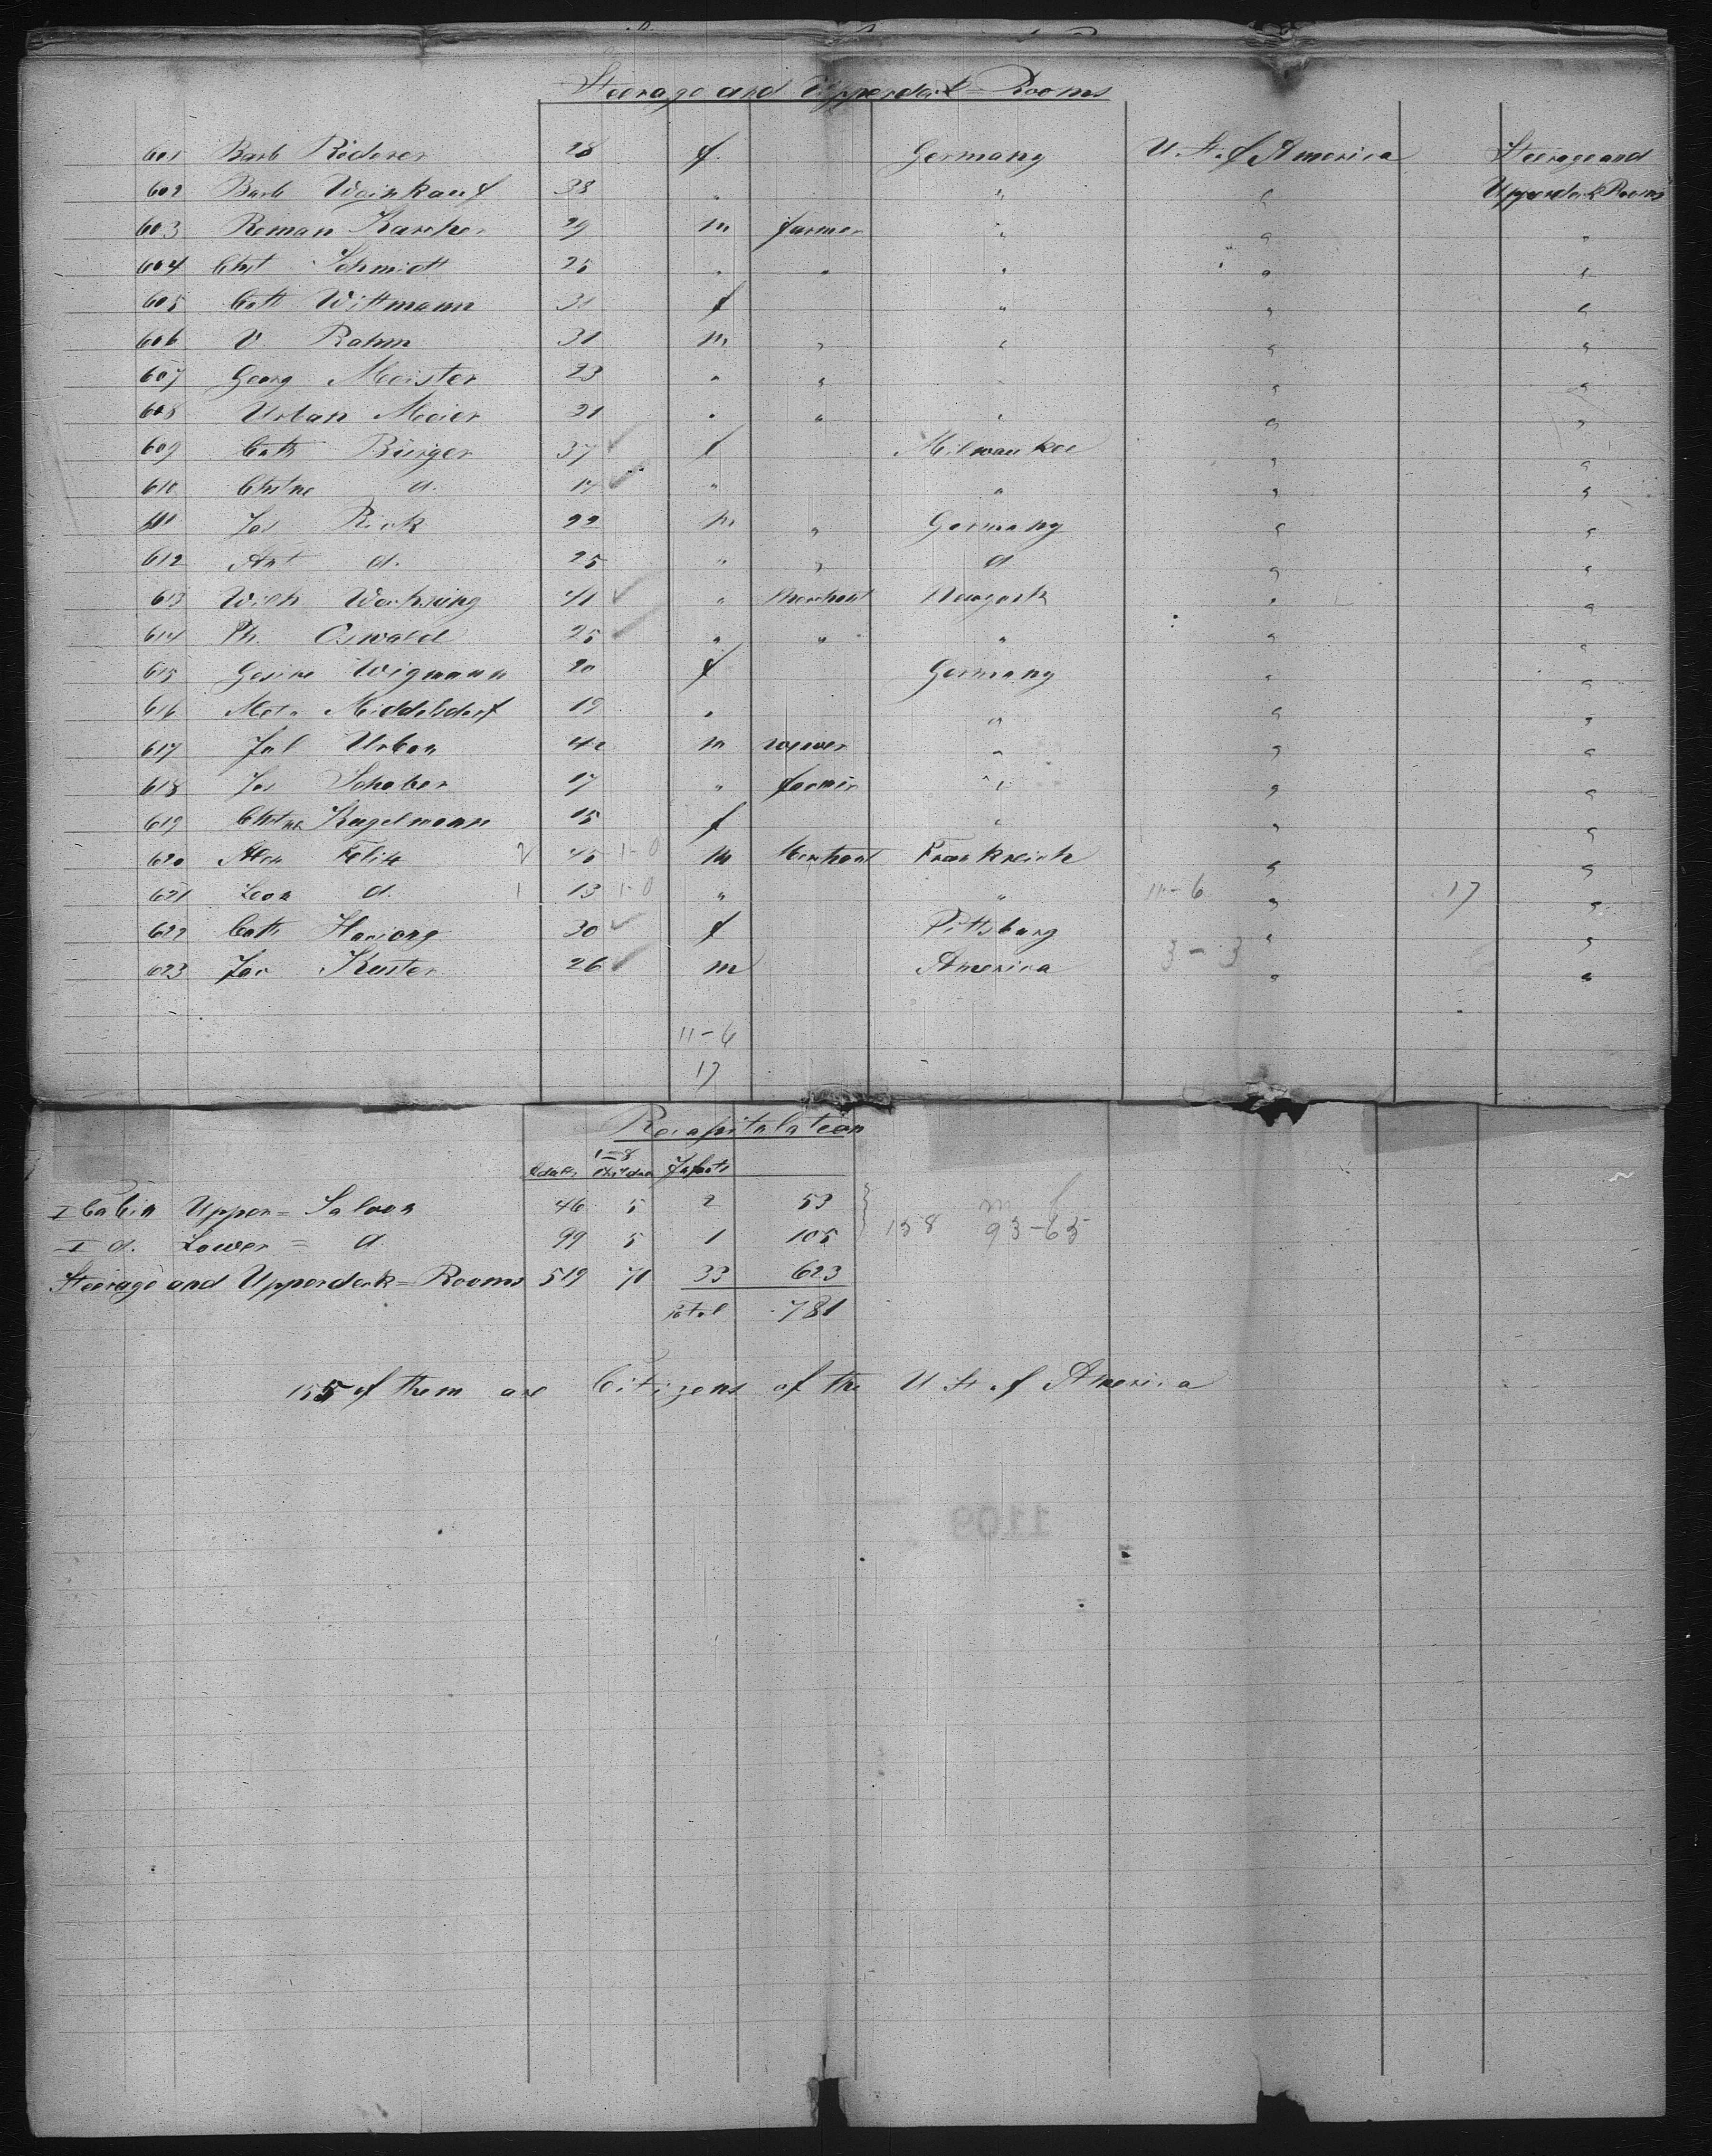 Steerage and Upperdeck = Rooms
601 Barb Röderer 28 f. Germany U. St. of America Steerage and
602 Barb Weinkauf 33 " " " Upperdeck Rooms
603 Roman Karcher 29 m farmer " " "
604 Chst Schmidt 25 " " " " "
605 Cath Wittmann 31 f " " "
606 V. Rahm 31 m " " " "
607 Georg Meister 23 " " " " "
608 Urban Meier 21 " " " " "
609 Cath Bürger 37 f Milwaukee " "
610 Chstne d. 17 " " " "
611 Jos Rick 22 m " Germany " "
612 Ant d. 25 " " d " "
613 Wilh 41 " Merchant Newyork " "
614 Ph. Oswald 25 " " " " "
615 Gesine Wigmann 20 f Germany " "
616 Meta Middelsdorf 19 " " " "
617 Jul Urban 42 m wewer " " "
618 Jos Schober 17 " farmer " " "
619 Chstne Kugelmann 15 f " " "
620 Alex Felix 2 45 1-0 m Merchant Frankreich " "
621 Leon d. 1 13 1-0 " " 11-6 " 17 "
622 Cath 30 f Pittsburg " "
623 Jac Kuster 26 m America 3-3 " "
11-6
17
Recapitulation
Adults 1=8 Children Infants
I Cabin Upper = Saloon 46 5 2 53 m f
I d. Lower = d. 99 5 1 105 158 93-65
Steerage and Upperdeck = Rooms 519 71 33 623
Total 781
155 of them are Citizens of the U. St. of America
1109